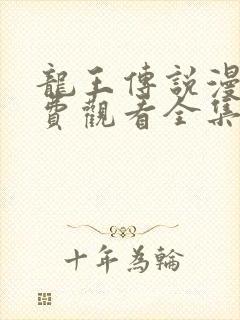 龍王傳說漫
費觀看全集
十年為輪